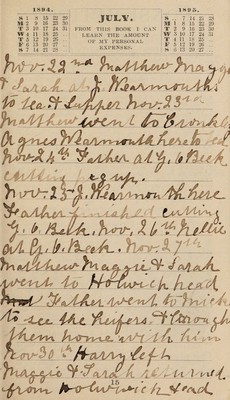 1894. JULY. 1895.
S 1 8 15 22 29
M 2 9 16 23 30
T 3 10 17 24 31
W 4 11 18 25
T 5 12 19 26
F 6 13 20 27
S 7 14 21 28
FROM THIS BOOK I CAN
LEARN THE AMOUNT
OF MY PERSONAL
EXPENSES.
S 7 14 21 28
M 1 8 15 22 29
T 2 9 16 23 30
W 3 10 17 24 31
T 4 11 18 25
F 5 12 19 26
S 6 13 20 27
Nov. 22nd Matthew Maggie
& Sarah at J. Wearmouths
to tea & Supper Nov. 23rd
Matthew went to
Agnes Wearmouth here to
Nov 24th Father at G. C Beck
cutting up.
Nov. 25 J. Wearmouth here
Father finished cutting
G. C. Beck. Nov. 26th Nellie
at G. C. Beck. Nov. 27th
Matthew Maggie & Sarah
went to Holwich head
Father went to Mick
to see the heifers. & brough
them home with him
Nov 30th Harry left
Maggie & Sarah returned
from Holwhich Head
15